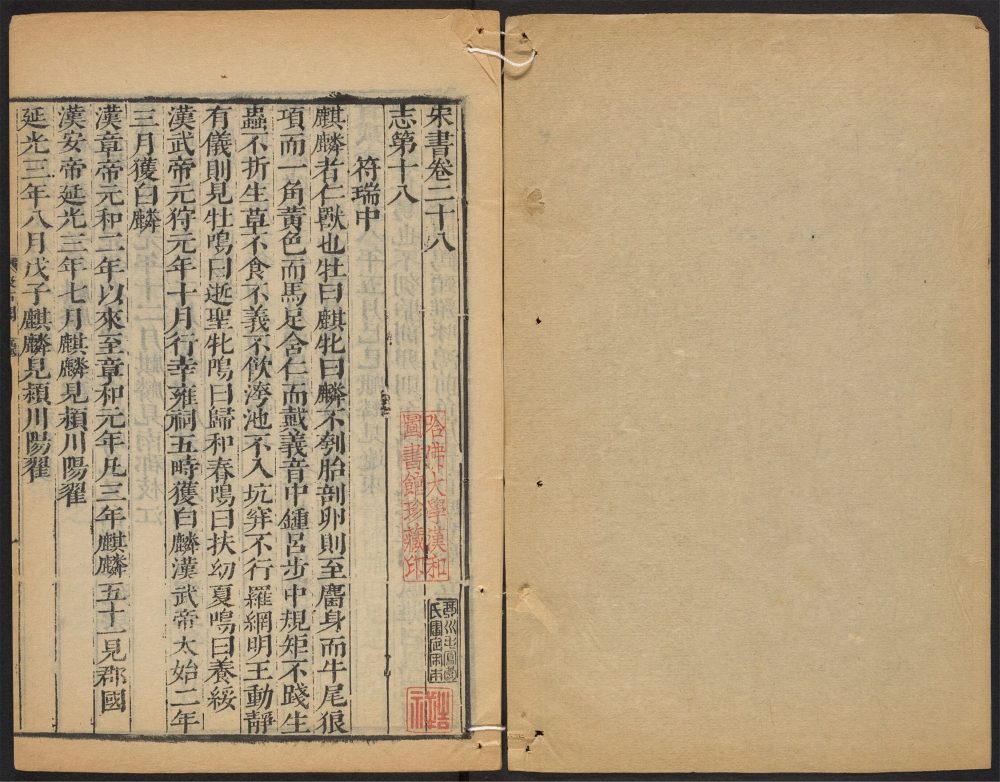 宋書卷二十八
志第十八
符瑞中
麒麟者仁獸也牡曰麒牝曰麟不刳胎剖卵則至麕身而牛尾狼
項而一角黃色而馬足含仁而戴義音中鍾呂步中規矩不踐生
蟲不折生草不食不義不飲洿池不入坑穽不行羅網明王動靜
有儀則見牡鳴曰逝聖牝鳴曰歸和春鳴曰扶幼夏鳴曰養綏
漢武帝元狩元年十月行幸雍祠五畤獲白麟漢武帝太始二年
三月獲白麟
漢章帝元和二年以來至章和元年凡三年麒麟五十一見郡國
漢安帝延光三年七月麒麟見潁川陽翟
延光三年八月戊子麒麟見潁川陽翟
哈佛大學漢和
圖書館珍藏印